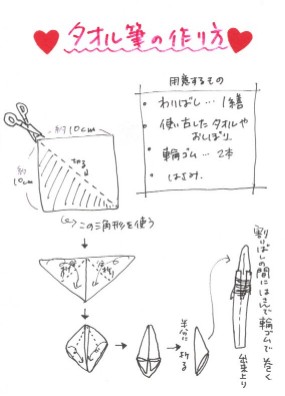 タオル筆の作り方
用意するもの
・わりばし…1膳
・使い古したタオルや
おしぼり。
・輪ゴム…2本
・はさみ。
約10cm
切る
約
10cm
この三角形を使う
半分に折る
割りばしの間にはさんで輪ゴムで巻く
出来上り